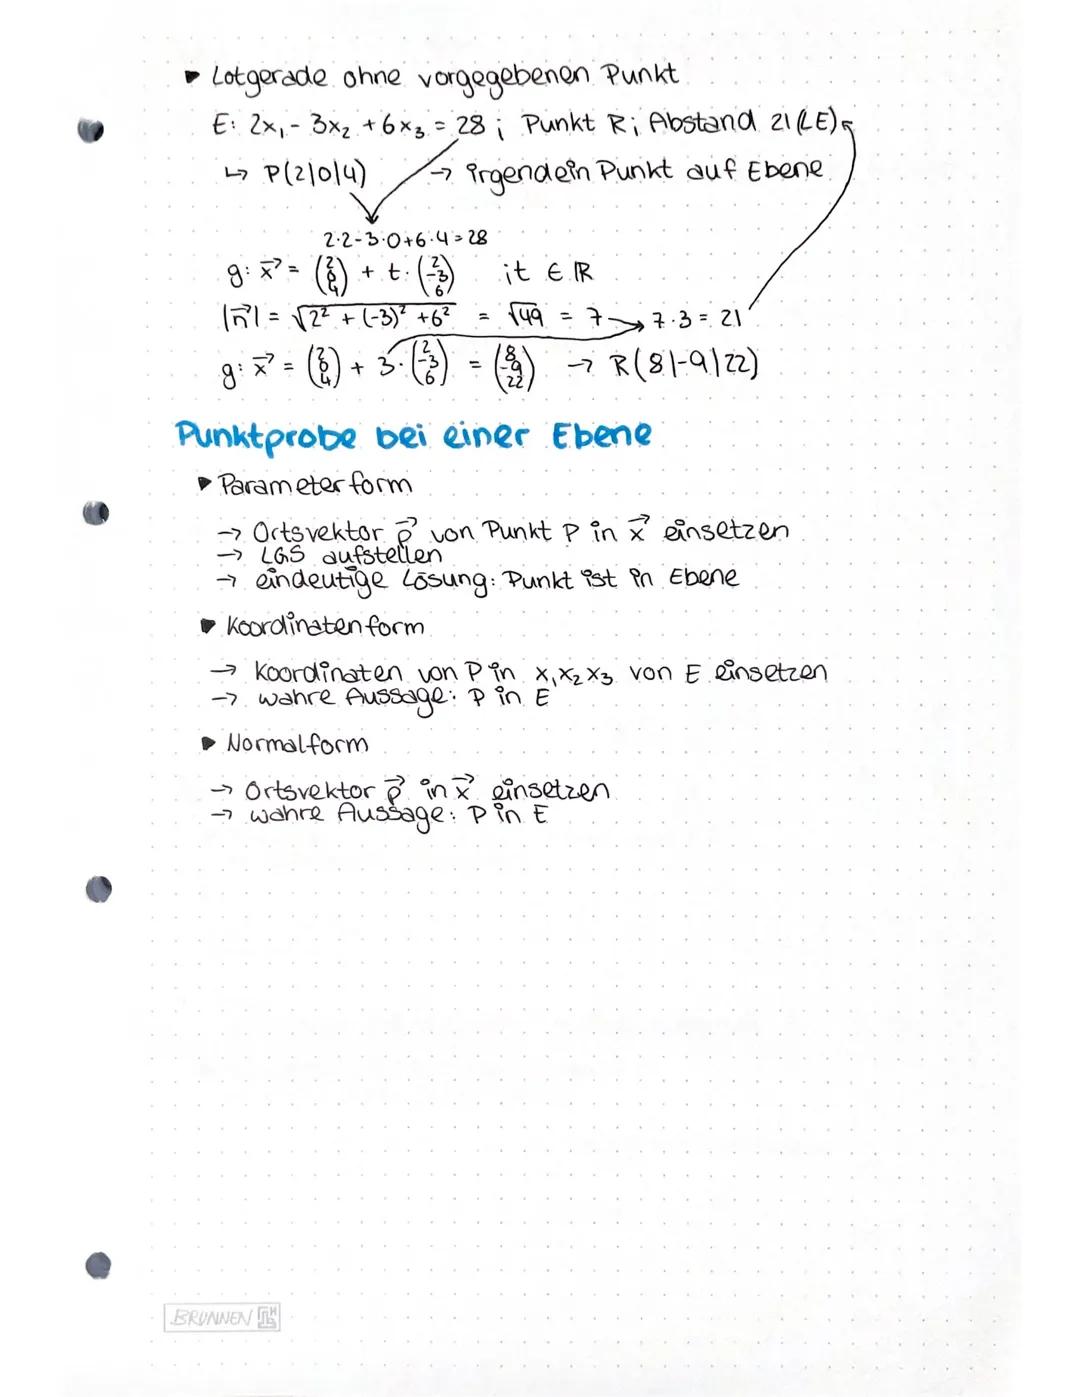 ▶ Lotgerade ohne vorgegebenen Punkt
E: 2x₁ - 3x₂ + 6x₃ = 28 ; Punkt R; Abstand 21 (LE)
↳ P(2|0|4) → irgendein Punkt auf Ebene
2·2-3·0+6·4=28
g: x⃗ = (2 0 4) + t · (2 -3 6) ; t ∈ ℝ
|n⃗| = √(2² + (-3)² + 6²) = √49 = 7 → 7·3 = 21
g: x⃗ = (2 0 4) + 3 · (2 -3 6) = (8 -9 22) → R(8|-9|22)
Punktprobe bei einer Ebene
▶ Parameterform
→ Ortsvektor p⃗ von Punkt P in x⃗ einsetzen
→ LGS aufstellen
→ eindeutige Lösung: Punkt ist in Ebene
▶ Koordinatenform
→ Koordinaten von P in x₁x₂x₃ von E einsetzen
→ wahre Aussage: P in E
▶ Normalform
→ Ortsvektor p⃗ in x⃗ einsetzen
→ wahre Aussage: P in E
BRUNNEN